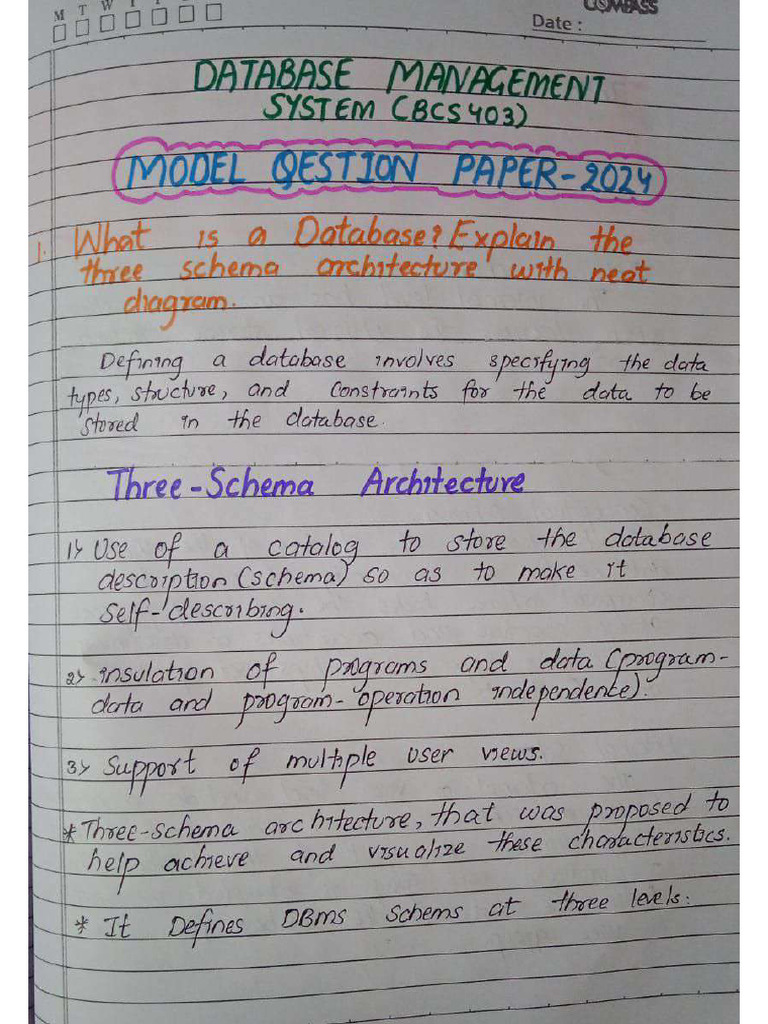 M T W T F S S
COMPASS
Date :
DATABASE MANAGEMENT
SYSTEM (BCS403)
MODEL QESTION PAPER-2024
1. What is a Database? Explain the
three schema architecture with neat
diagram.
Defining a database involves specifying the data
types, structure, and constraints for the data to be
stored in the database.
Three-Schema Architecture
1) Use of a catalog to store the database
description (schema) so as to make it
self-describing.
2) insulation of programs and data (program-
data and program-operation independence).
3) Support of multiple user views.
* Three-schema architecture, that was proposed to
help achieve and visualize these characteristics.
* It Defines DBms Schems at three levels: